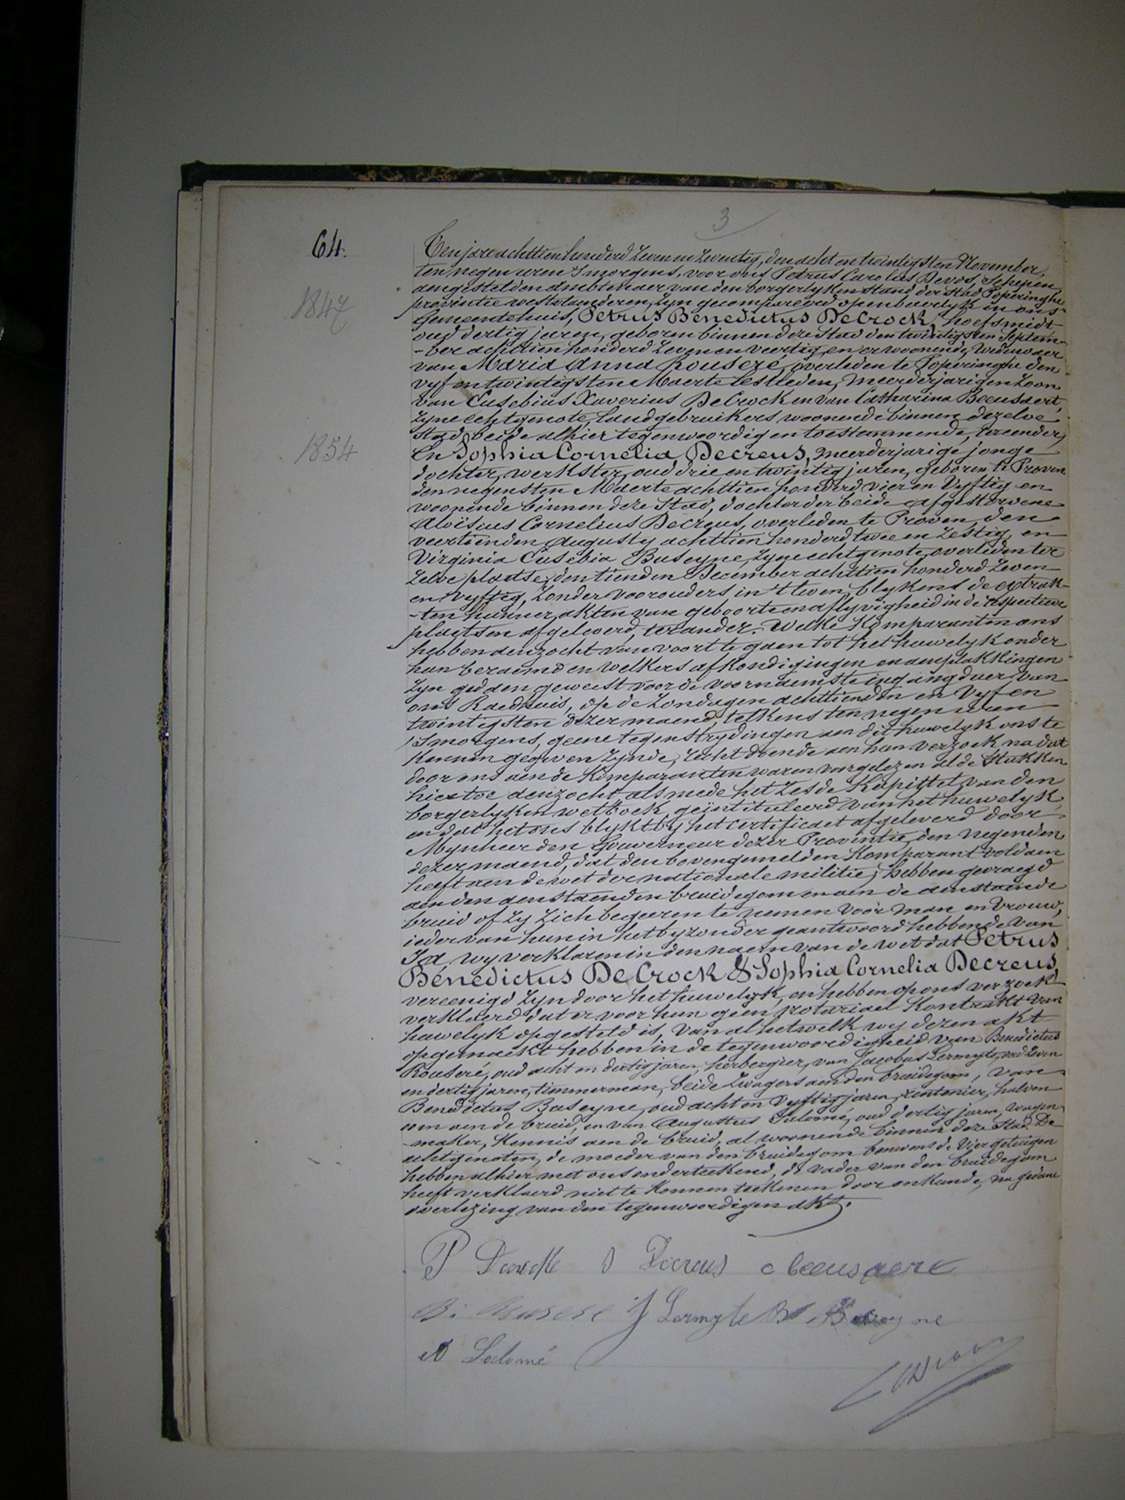 3
64.
Ten jare achttien honderd zeven en zeventig, den acht en twintigsten November,
ten negen uren 's morgens, voor ons Petrus Carolus Devos, Schepen,
aangestelden ambtenaer van den borgerlyken stand der Stad Poperinghe
provintie westvlanderen, zyn gecompareerd openbaerlyk in ons
1847
Gemeentehuis, Petrus Benedictus DeCrock, hoefsmidt
oud dertig jaren, geboren binnen deze stad den twintigsten Septem-
-ber achttien honderd zeven en veertig, en er woonende, weduwaer
van Maria Anna Rousere, overleden te Poperinghe den
vyf en twintigsten Maerte lestleden, meerderjarigen zoon
van Eusebius Xaverius DeCrock en van Catharina Beeusaert,
zyne echtgenote, landgebruikers, woonende binnen dezelve
stad, beide alhier tegenwoordig en toestemmende, ter eender,
1854
En Sophia Cornelia Decreus, meerderjarige jonge
dochter, werkster, oud drie en twintig jaren, geboren te Proven
den negensten Maerte achttien honderd vier en vyftig en
woonende binnen deze stad, dochter der beide afgestorvene
Aloisius Cornelius Decreus, overleden te Proven, den
veertienden Augusty achttien honderd twee en zestig, en
Virginia Eusebia Buseyne, zyne echtgenote, overleden ter
zelve plaetse, den tienden December achttien honderd zeven
en vyftig, zonder voorouders in 't leven, blykens de extrak-
-ten hunner akten van geboorte en aflyvigheid in de respectieve
plaetsen afgeleverd, ter ander. Welke komparanten ons
hebben aenzocht van voort te gaen tot het huwelyk onder
hun beraemd en welkers afkondigingen en aenplakkingen
zyn gedaen geweest voor de voornaemste ingangdeur van
ons Raedhuis, op de zondagen achttienden en vyf en
twintigsten dezer maend, telkens ten negen uren
's morgens, geene tegenstrydingen aen dit huwelyk ons te
kennen gegeven zynde, recht doende aen hun verzoek na dat
door ons aen de komparanten waren voorgelezen al de stukken
hier toe aenzocht, als mede het zesde kapittel van den
borgerlyken wetboek, geïntituleerd van het huwelyk
en dat het ons blykt by het certificaet afgeleverd door
Mynheer den Gouverneur dezer Provintie, den negenden
dezer maend, dat den bovengemelden komparant voldaen
heeft aen de wet der nationale militie; hebben gevraegd
aen den aenstaenden bruidegom en aen de aenstaende
bruid of zy zich begeeren te nemen voor man en vrouw,
ieder van hun in het byzonder geantwoord hebbende van
Ja, wy verklaren in den naem van de wet dat Petrus
Benedictus DeCrock & Sophia Cornelia Decreus,
vereenigd zyn door het huwelyk, en hebben op ons verzoek
verklaerd dat er voor hun geen notariael kontrakt van
huwelyk opgesteld is, van al hetwelk wy dezen akt
opgemaekt hebben in de tegenwoordigheid van Benedictus
Rousere, oud acht en dertig jaren, herbergier, van Jacobus Lermyte, oud zeven
en dertig jaren, timmerman, beide zwagers aen den bruidegom, van
Benedictus Buseyne, oud acht en vyftig jaren, rentenier, halven
oom aen de bruid, en van Augustus Salomé, oud dertig jaren, wagen-
-maker, kennis aen de bruid, al woonende binnen deze stad. De
echtgenoten, de moeder van den bruidegom benevens de vier getuigen
hebben alhier met ons onderteekend, de vader van den bruidegom
heeft verklaerd niet te konnen teekenen door onkunde, na gedane
overlezing van den tegenwoordigen akt.
P Decrock S Decreus C beeusaere
B. Rousere J Lermyte B Buseyne
A Salomé
C Devos